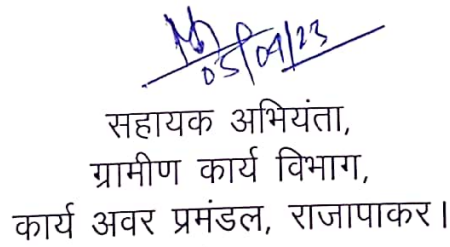 05/09/23
सहायक अभियंता,
ग्रामीण कार्य विभाग,
कार्य अवर प्रमंडल, राजापाकर।